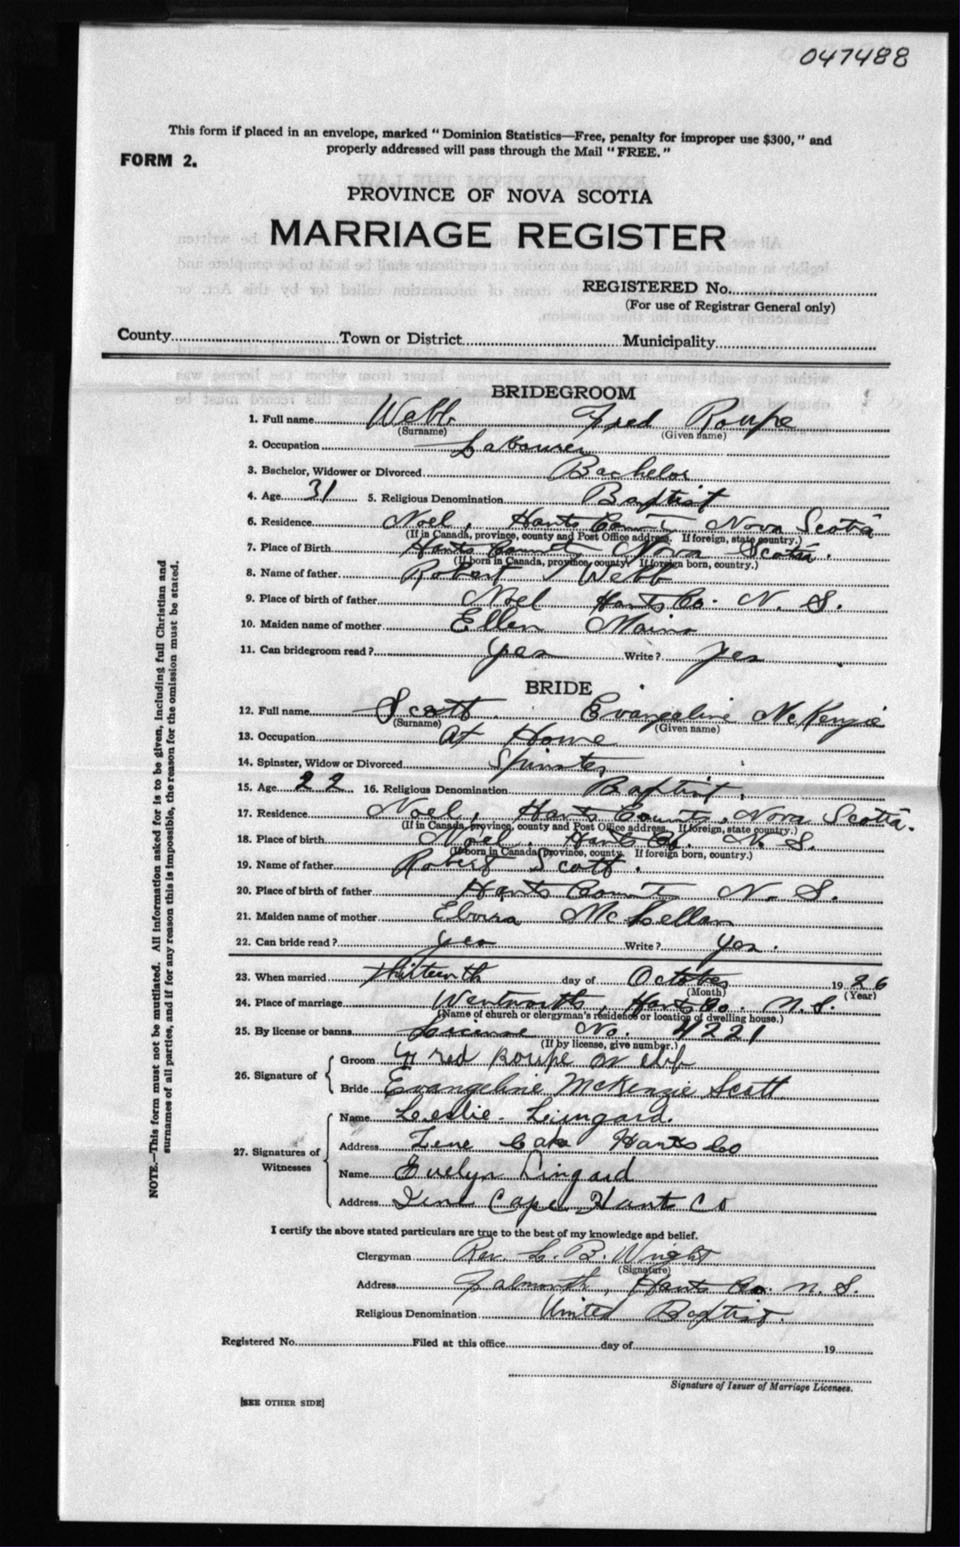 047488
This form if placed in an envelope, marked "Dominion Statistics—Free, penalty for improper use $300," and
properly addressed will pass through the Mail "FREE."
FORM 2.
PROVINCE OF NOVA SCOTIA
MARRIAGE REGISTER
REGISTERED No.
(For use of Registrar General only)
County Town or District Municipality
BRIDEGROOM
1. Full name Webb Fred Roupe
(Surname) (Given name)
2. Occupation Labourer
3. Bachelor, Widower or Divorced Bachelor
4. Age 31 5. Religious Denomination Baptist
6. Residence Noel, Hants County Nova Scotia
(If in Canada, province, county and Post Office address. If foreign, state country.)
7. Place of Birth Hants County Nova Scotia.
(If born in Canada, province, county. If foreign born, country.)
8. Name of father Robert Webb
9. Place of birth of father Noel Hants Co. N. S.
10. Maiden name of mother Ellen
11. Can bridegroom read? yes Write? yes
BRIDE
12. Full name Scott. Evangeline McKenzie
(Surname) (Given name)
13. Occupation At Home
14. Spinster, Widow or Divorced Spinster
15. Age 22 16. Religious Denomination Baptist.
17. Residence Noel, Hants County, Nova Scotia.
(If in Canada, province, county and Post Office address. If foreign, state country.)
18. Place of birth Noel, Hants Co. N. S.
(If born in Canada, province, county. If foreign born, country.)
19. Name of father Robert Scott.
20. Place of birth of father Hants County N. S.
21. Maiden name of mother McLellan
22. Can bride read? yes Write? yes.
23. When married thirteenth day of October 1926
(Month) (Year)
24. Place of marriage Wentworth, Hants Co. N. S.
(Name of church or clergyman's residence or location of dwelling house.)
25. By license or banns License No. 4221
(If by license, give number.)
26. Signature of
Groom Fred Roupe Webb
Bride Evangeline McKenzie Scott
27. Signatures of Witnesses
Name Leslie Lingard.
Address Hants Co
Name Evelyn Lingard
Address Cape Hant Co
I certify the above stated particulars are true to the best of my knowledge and belief.
Clergyman Rev. L. B. Wright
(Signature)
Address Falmouth, Hants Co. N. S.
Religious Denomination United Baptist.
Registered No. Filed at this office day of 19
Signature of Issuer of Marriage Licenses.
[SEE OTHER SIDE]
NOTE.—This form must not be mutilated. All information asked for is to be given, including full Christian and
surnames of all parties, and if for any reason this is impossible, the reason for the omission must be stated.